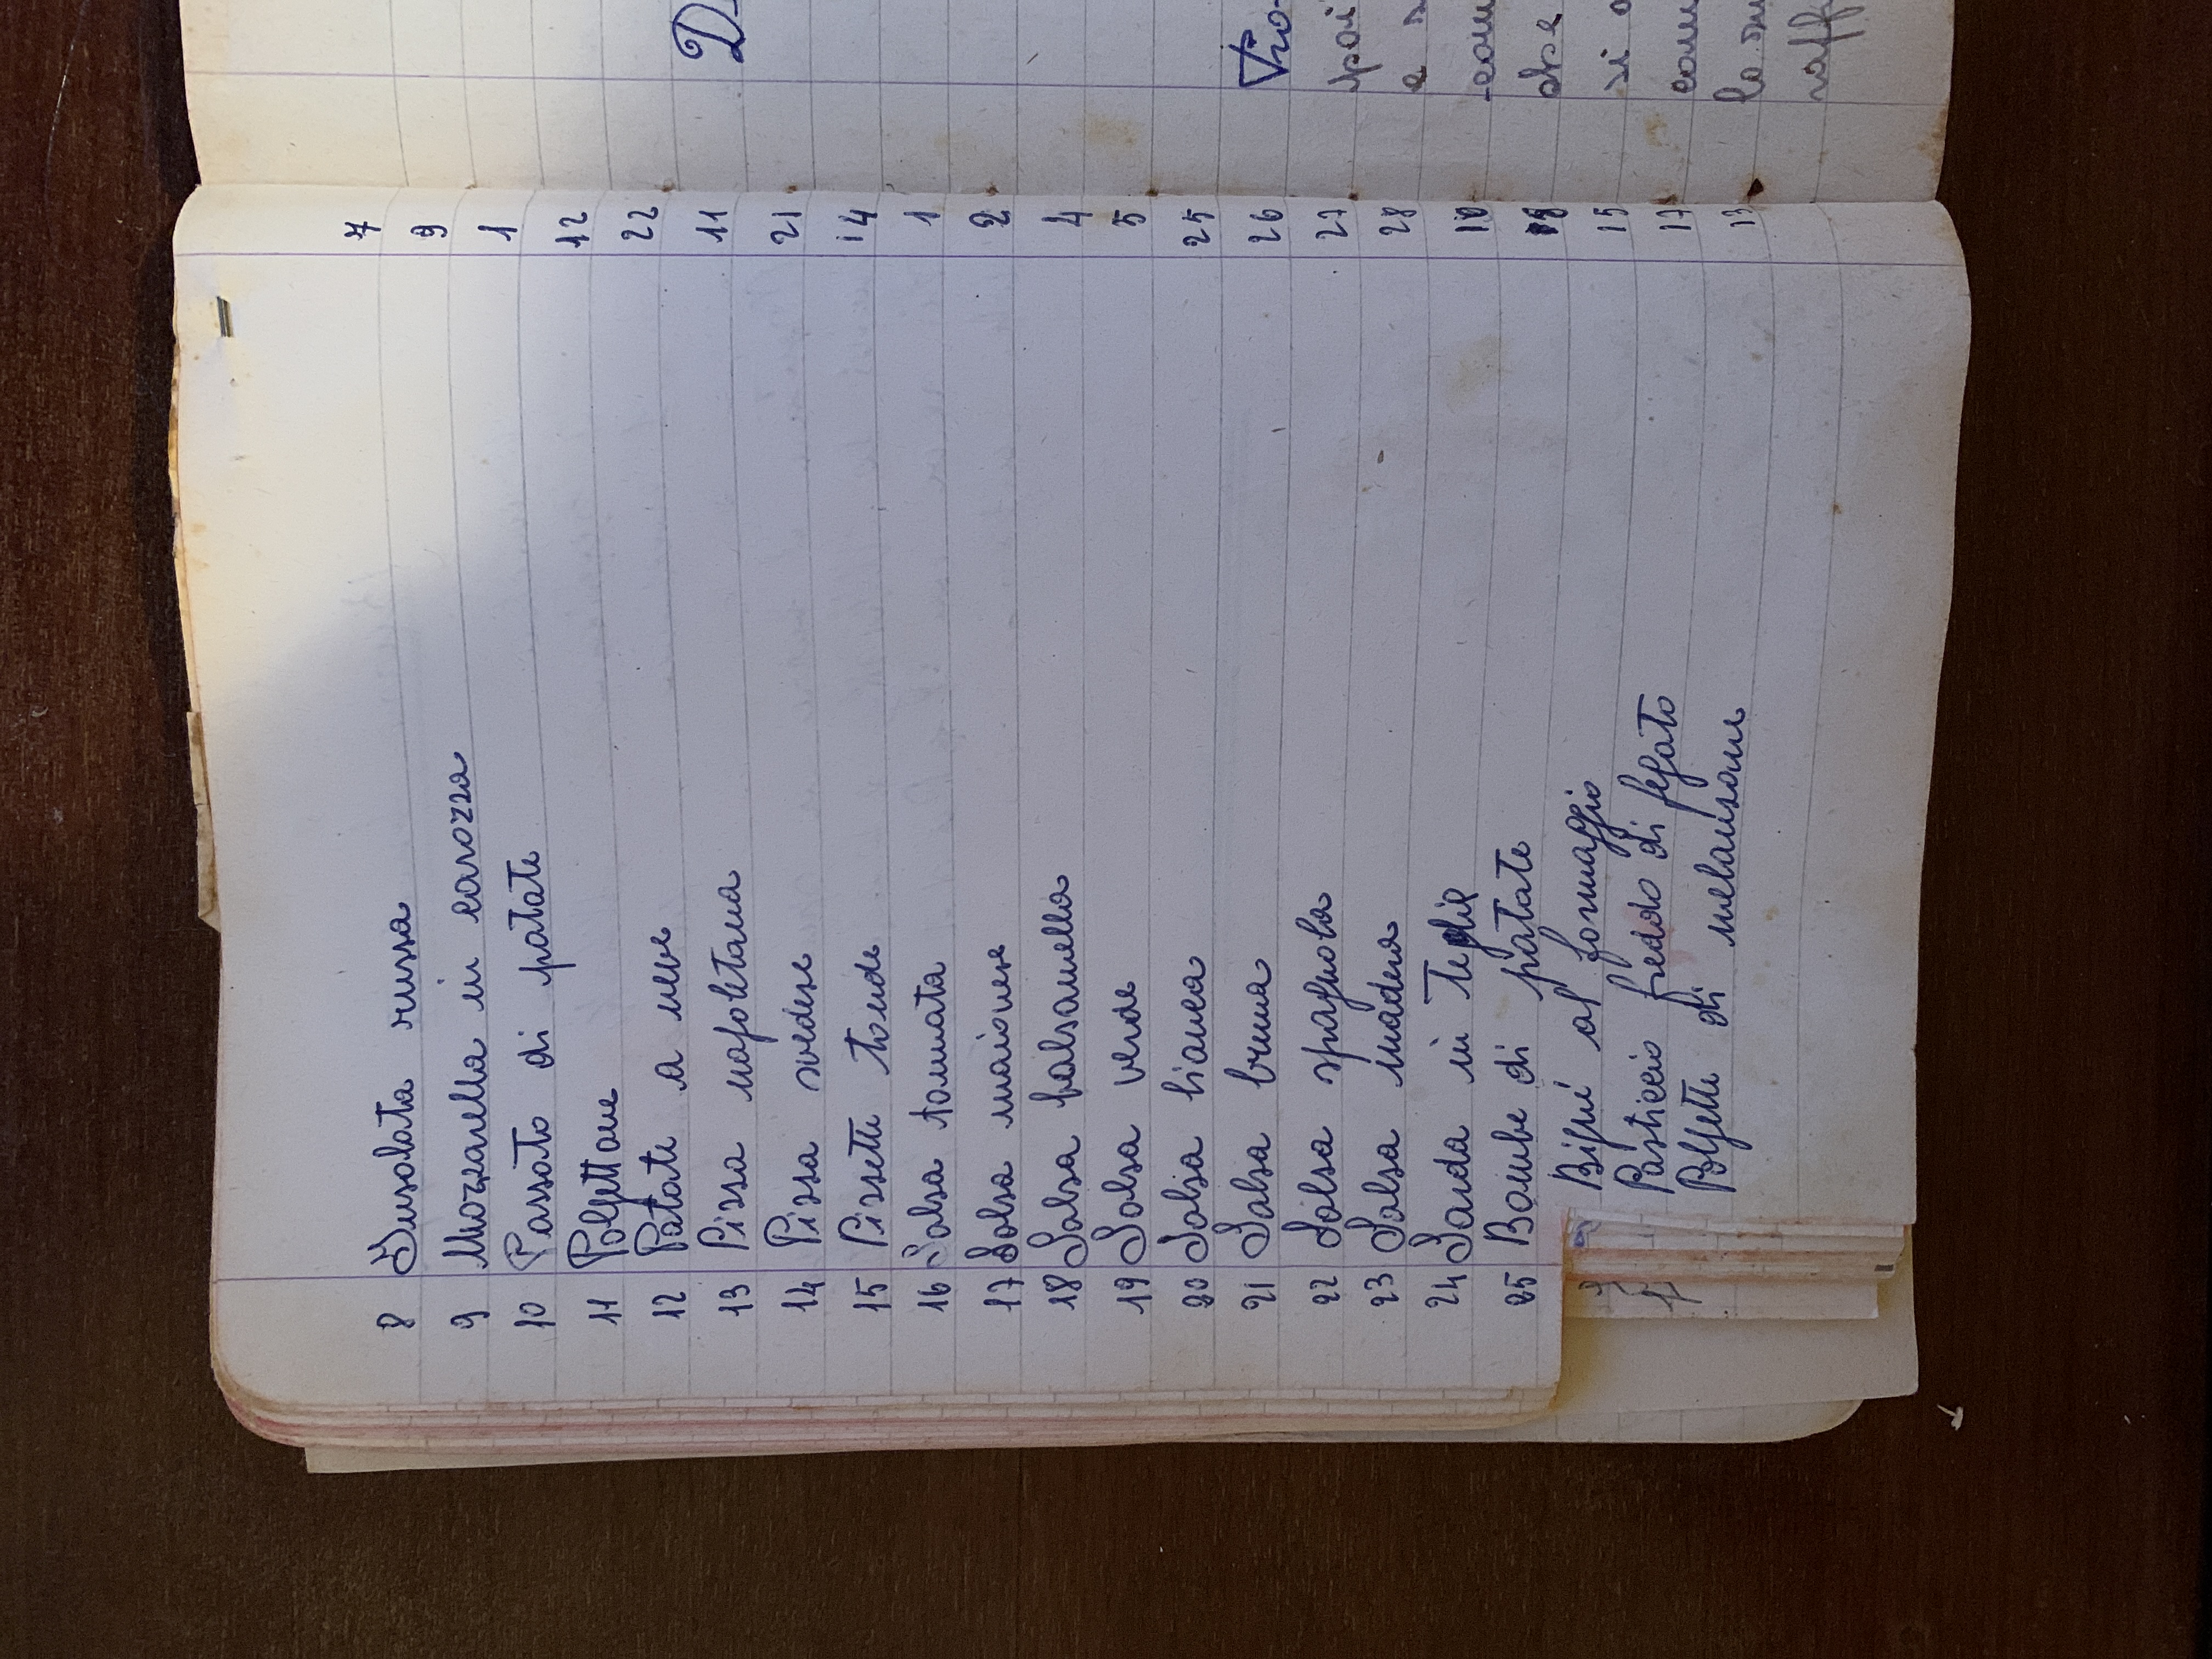 8 Insalata russa 7
9 Mozzarella in carozza 9
10 Passato di patate 1
11 Polpettone 12
12 Patate a neve 22
13 Pizza napoletana 11
14 Pizza svedese 21
15 Pizzette tonde 14
16 Salsa tonnata 1
17 Salsa maionese 2
18 Salsa balsamella 4
19 Salsa verde 5
20 Salsa bianca 25
21 Salsa bruna 26
22 Salsa spagnola 27
23 Salsa madera 28
24 Sarda in teglie 10
25 Bombe di patate 18
Bignè al formaggio 15
Pasticcio freddo di fegato 17
Polpette di melanzane 13
poi
e
si